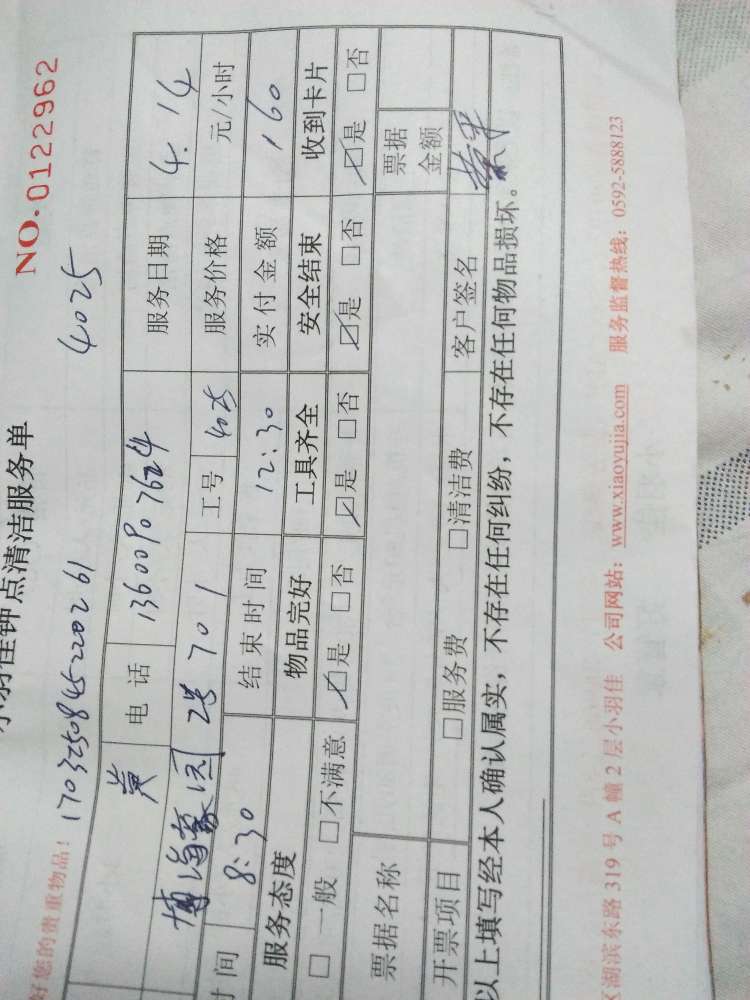 NO.0122962
小羽佳钟点清洁服务单
好您的贵重物品! 17032508452200261 4025
黄 电话 13600907624 服务日期 4.14
博海豪园 2号 701 工号 4025 服务价格 元/小时
时间 8:30 结束时间 12:30 实付金额 160
服务态度 物品完好 工具齐全 安全结束 收到卡片
□一般 □不满意 ☑是 □否 ☑是 □否 ☑是 □否 ☑是 □否
票据名称 票据金额
开票项目 □服务费 □清洁费 客户签名
以上填写经本人确认属实,不存在任何纠纷,不存在任何物品损坏。
区湖滨东路 319 号 A 幢 2 层小羽佳 公司网站:www.xiaoyujia.com 服务监督热线:0592-5888123